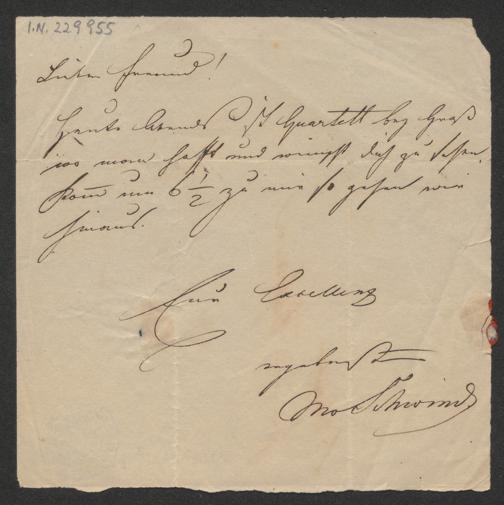 I.N. 229955
Lieber Freund!
Heute Abends ist Quartett bey Groß
wo man hofft und wünscht dich zu sehen.
Kom̄ um 6 1/2 zu mir so gehen wir
hinaus.
Euer Excellenz
ergebenst
Schwind